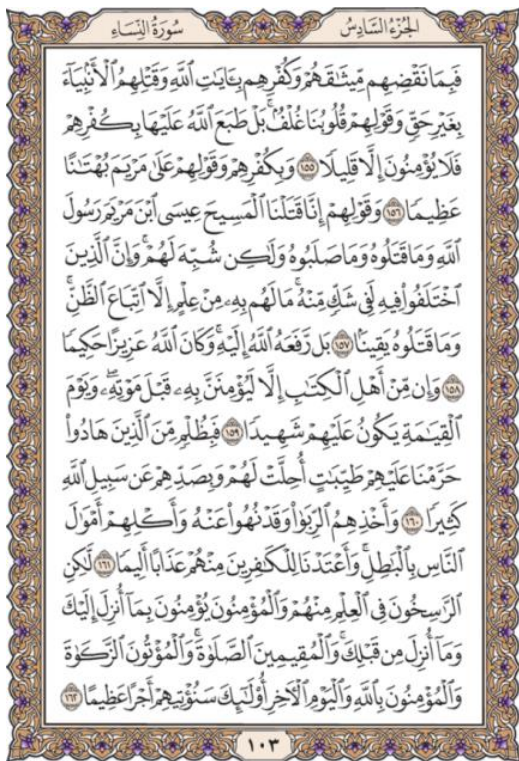 سُورَةُ النِّسَاءِ
الجُزْءُ السَّادِسُ
فَبِمَا نَقْضِهِم مِّيثَٰقَهُمْ وَكُفْرِهِم بِـَٔايَٰتِ ٱللَّهِ وَقَتْلِهِمُ ٱلْأَنۢبِيَآءَ
بِغَيْرِ حَقٍّ وَقَوْلِهِمْ قُلُوبُنَا غُلْفٌۢ ۚ بَلْ طَبَعَ ٱللَّهُ عَلَيْهَا بِكُفْرِهِمْ
فَلَا يُؤْمِنُونَ إِلَّا قَلِيلًا ١٥٥ وَبِكُفْرِهِمْ وَقَوْلِهِمْ عَلَىٰ مَرْيَمَ بُهْتَٰنًا
عَظِيمًا ١٥٦ وَقَوْلِهِمْ إِنَّا قَتَلْنَا ٱلْمَسِيحَ عِيسَى ٱبْنَ مَرْيَمَ رَسُولَ
ٱللَّهِ وَمَا قَتَلُوهُ وَمَا صَلَبُوهُ وَلَٰكِن شُبِّهَ لَهُمْ ۚ وَإِنَّ ٱلَّذِينَ
ٱخْتَلَفُوا۟ فِيهِ لَفِى شَكٍّ مِّنْهُ ۚ مَا لَهُم بِهِۦ مِنْ عِلْمٍ إِلَّا ٱتِّبَاعَ ٱلظَّنِّ ۚ
وَمَا قَتَلُوهُ يَقِينًۢا ١٥٧ بَل رَّفَعَهُ ٱللَّهُ إِلَيْهِ ۚ وَكَانَ ٱللَّهُ عَزِيزًا حَكِيمًا
١٥٨ وَإِن مِّنْ أَهْلِ ٱلْكِتَٰبِ إِلَّا لَيُؤْمِنَنَّ بِهِۦ قَبْلَ مَوْتِهِۦ ۖ وَيَوْمَ
ٱلْقِيَٰمَةِ يَكُونُ عَلَيْهِمْ شَهِيدًا ١٥٩ فَبِظُلْمٍ مِّنَ ٱلَّذِينَ هَادُوا۟
حَرَّمْنَا عَلَيْهِمْ طَيِّبَٰتٍ أُحِلَّتْ لَهُمْ وَبِصَدِّهِمْ عَن سَبِيلِ ٱللَّهِ
كَثِيرًا ١٦٠ وَأَخْذِهِمُ ٱلرِّبَوٰا۟ وَقَدْ نُهُوا۟ عَنْهُ وَأَكْلِهِمْ أَمْوَٰلَ
ٱلنَّاسِ بِٱلْبَٰطِلِ ۚ وَأَعْتَدْنَا لِلْكَٰفِرِينَ مِنْهُمْ عَذَابًا أَلِيمًا ١٦١ لَّٰكِنِ
ٱلرَّٰسِخُونَ فِى ٱلْعِلْمِ مِنْهُمْ وَٱلْمُؤْمِنُونَ يُؤْمِنُونَ بِمَآ أُنزِلَ إِلَيْكَ
وَمَآ أُنزِلَ مِن قَبْلِكَ ۚ وَٱلْمُقِيمِينَ ٱلصَّلَوٰةَ ۚ وَٱلْمُؤْتُونَ ٱلزَّكَوٰةَ
وَٱلْمُؤْمِنُونَ بِٱللَّهِ وَٱلْيَوْمِ ٱلْءَاخِرِ أُو۟لَٰٓئِكَ سَنُؤْتِيهِمْ أَجْرًا عَظِيمًا ١٦٢
١٠٣